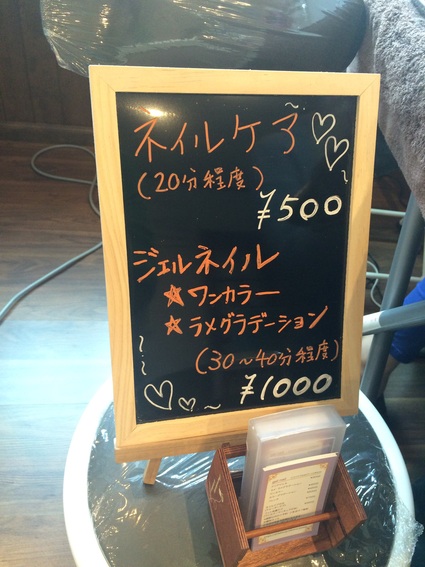 ネイルケア
(20分程度)
¥500
ジェルネイル
☆ワンカラー
☆ラメグラデーション
(30～40分程度)
¥1000